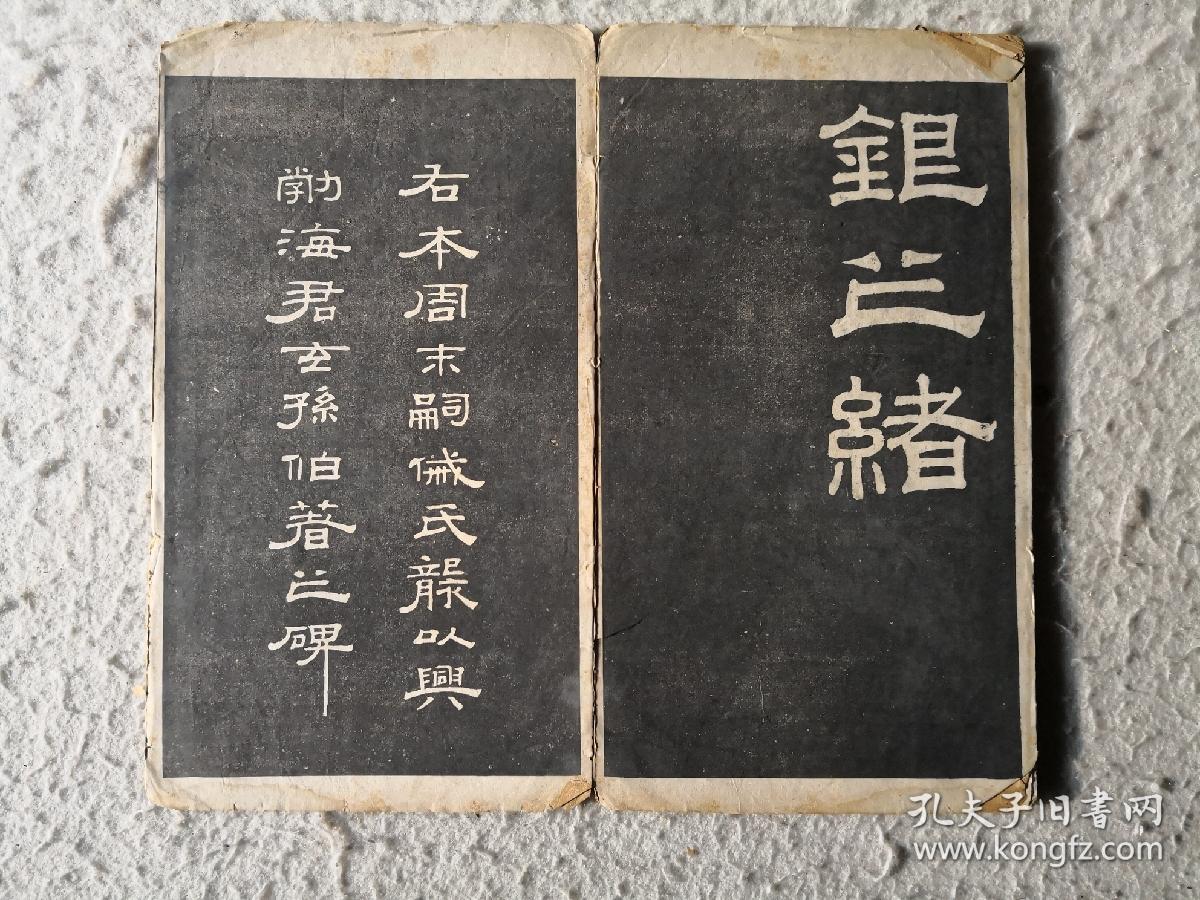 之緒
右本周末嗣氏以興
勃海君玄孫伯著之碑
孔夫子旧書网
www.kongfz.com